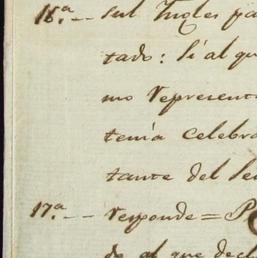 16.ª -- sul Ingles pa
tado: si al qu
mo represent
tenia celebra
tante del
17.ª -- responde = P
do al que decl